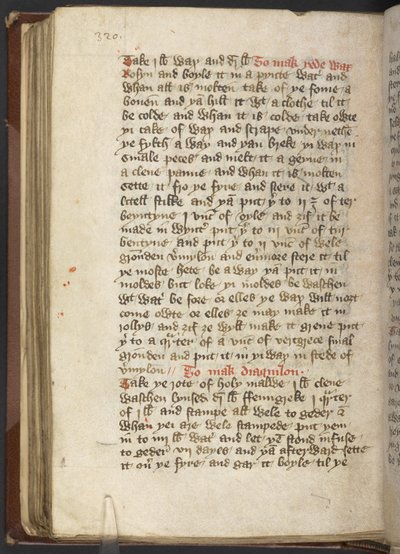 320.
Take i ℔ wax and di ℔ To mak rede wax
Rosyn and boyle it in a pynte wat' and
whan all is molten take of þe fome a
bouen and þā hill it wt a clothe til it
be colde and whan it is colde take owte
þi cake of wax and scrape vnder nethe
þe fylth a way and þan breke þi wax in
smale peces and melt it a geyne in
a clene panne and whan it is molten
sette it fro þe fyre and stere it wt a
litell stikke and þā put þ'to ii ℥ of ter
bentyne i vnc' of oyle and ȝif it be
made in wynt' put þ'to iii vnc' of tur
bentyne and put þ'to ii vnc' of wele
gronden v'mylon and euimore stere it til
þe moste hete be a way þā put it in
moldes but loke þi moldes be waschen
wt wat' be fore or elles þe wax will noȝt
come owte or elles ȝe may make it in
rollys and ȝif ȝe wyll make it grene put
þ'to a qrter of a vnc of vertgrece smal
gronden and put it in þi wax in stede of
v'mylon // To mak diaquilon.
Take þe rote of holy malwe i ℔ clene
waschen lynsed di ℔ ffenigreke i qrter
of i ℔ and stampe all wele to geder &
whan þei are wele stampede put þem
in to iiii ℔ wat' and let þē stond infuse
to geder vii dayes and þā afterward sette
it on þe fyre and gar it boyle til þe